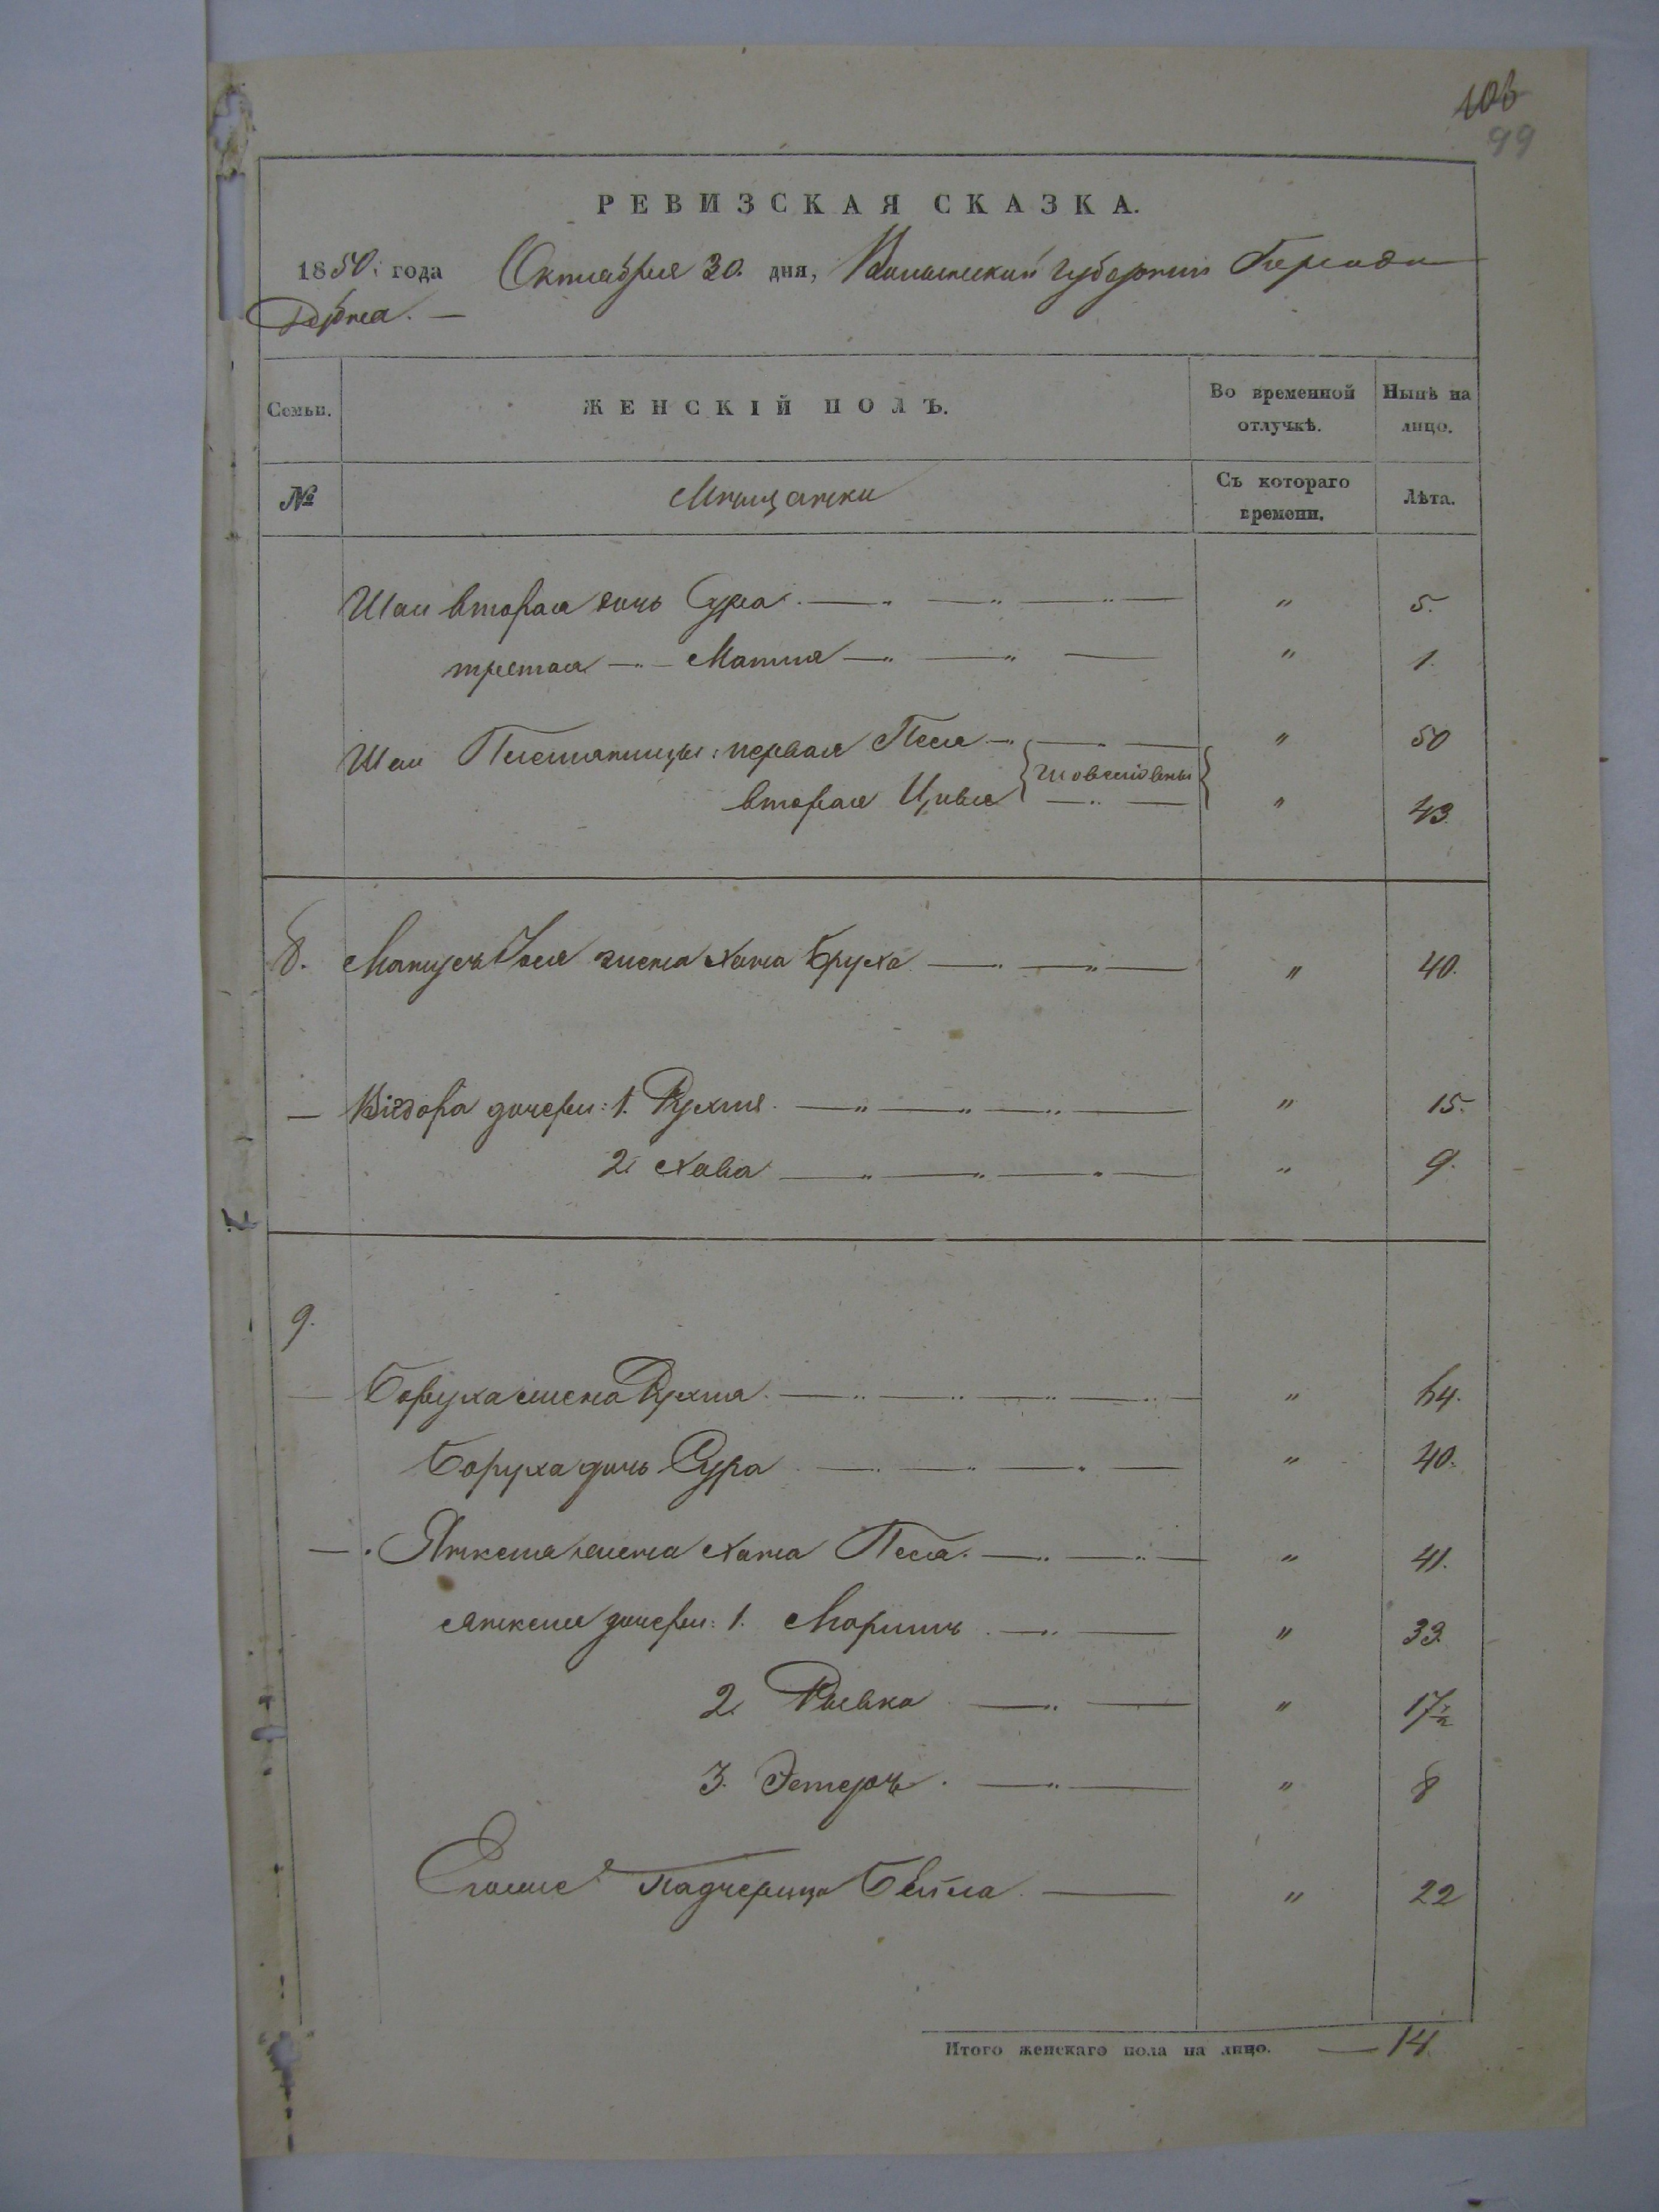 106
99
РЕВИЗСКАЯ СКАЗКА.
1850. года Октября 30. дня, Волынской губернии Города
Дубна. —
Семьи. ЖЕНСКІЙ ПОЛЪ. Во временной отлучкѣ. Нынѣ на лицо.
№ Мѣщанки Съ котораго времени. Лѣта.
Шаи вторая дочь Сура " 5.
третая —"— Матля " 1.
Шаи Племянницы: первая Песя " 50
вторая Цивья " 43
8. жена Хана Бруха " 40.
— Вигдора дочери: 1. Рухля " 15.
2. Хава " 9.
9.
— Боруха жена Рухля " 64.
Боруха дочь Сура " 40.
— Янкеля жена Хана Песа " 41.
Янкеля дочери: 1. " 33.
2. Ривка " 17½
3. Эстеръ " 8
Падчерица Бейла " 22
Итого женскаго пола на лицо. — 14